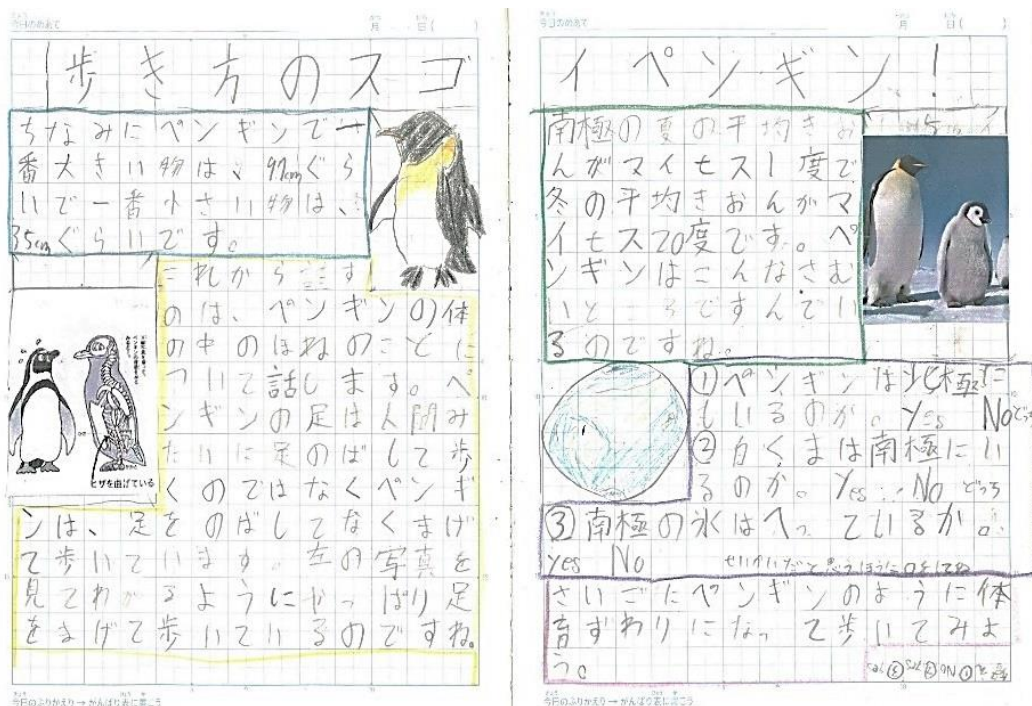 今日のめあて
月 日( )
歩き方のスゴ
ちなみにペンギンで一
番大きい物は、97cmぐら
いで一番小さい物は、
35cmぐらいです。
これから話す
のは、ペンギンの体
の中のほねのことに
ついて話します。ペ
ンギンの足は人間み
たいに足のばして歩
くのではなくペンギ
ンは、足をのばしてなくまげ
て歩いています。左の写真を
見てわかるようにやっぱり足
をまげて歩いているのですね。
ヒザを曲げている
今日のふりかえり→がんばり表に書こう
今日のめあて
月 日( )
イペンギン!
南極の夏の平均きお
んがマイセス1度で
冬の平均きおんがマ
イセス20度です。ペ
ンギンはこんなさむ
いところですんでい
るのですね。
①ペンギンは北極に
いるのか。Yes No どっち
②白くまは南極にい
るのか。Yes No どっち
③南極の氷はへっているか。
yes No せいかいだと思うほうに〇をしてね
さいごにペンギンのように体
育ずわりになって歩いてみよ
う。
①No ②No ③yes
今日のふりかえり→がんばり表に書こう